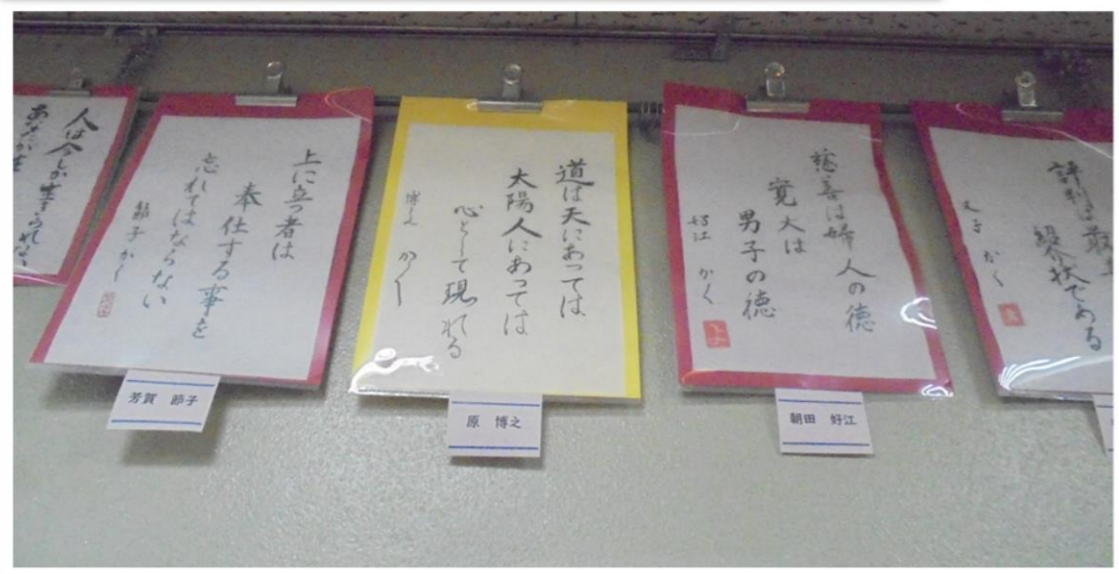 人は今しか生きられな
上に立つ者は
奉仕する事を
忘れてはならない
節子 かく
芳賀 節子
道は天にあっては
太陽人にあっては
心として現れる
博之 かく
原 博之
慈善は婦人の徳
寛大は
男子の徳
好江 かく
朝田 好江
評判は最
である
かく